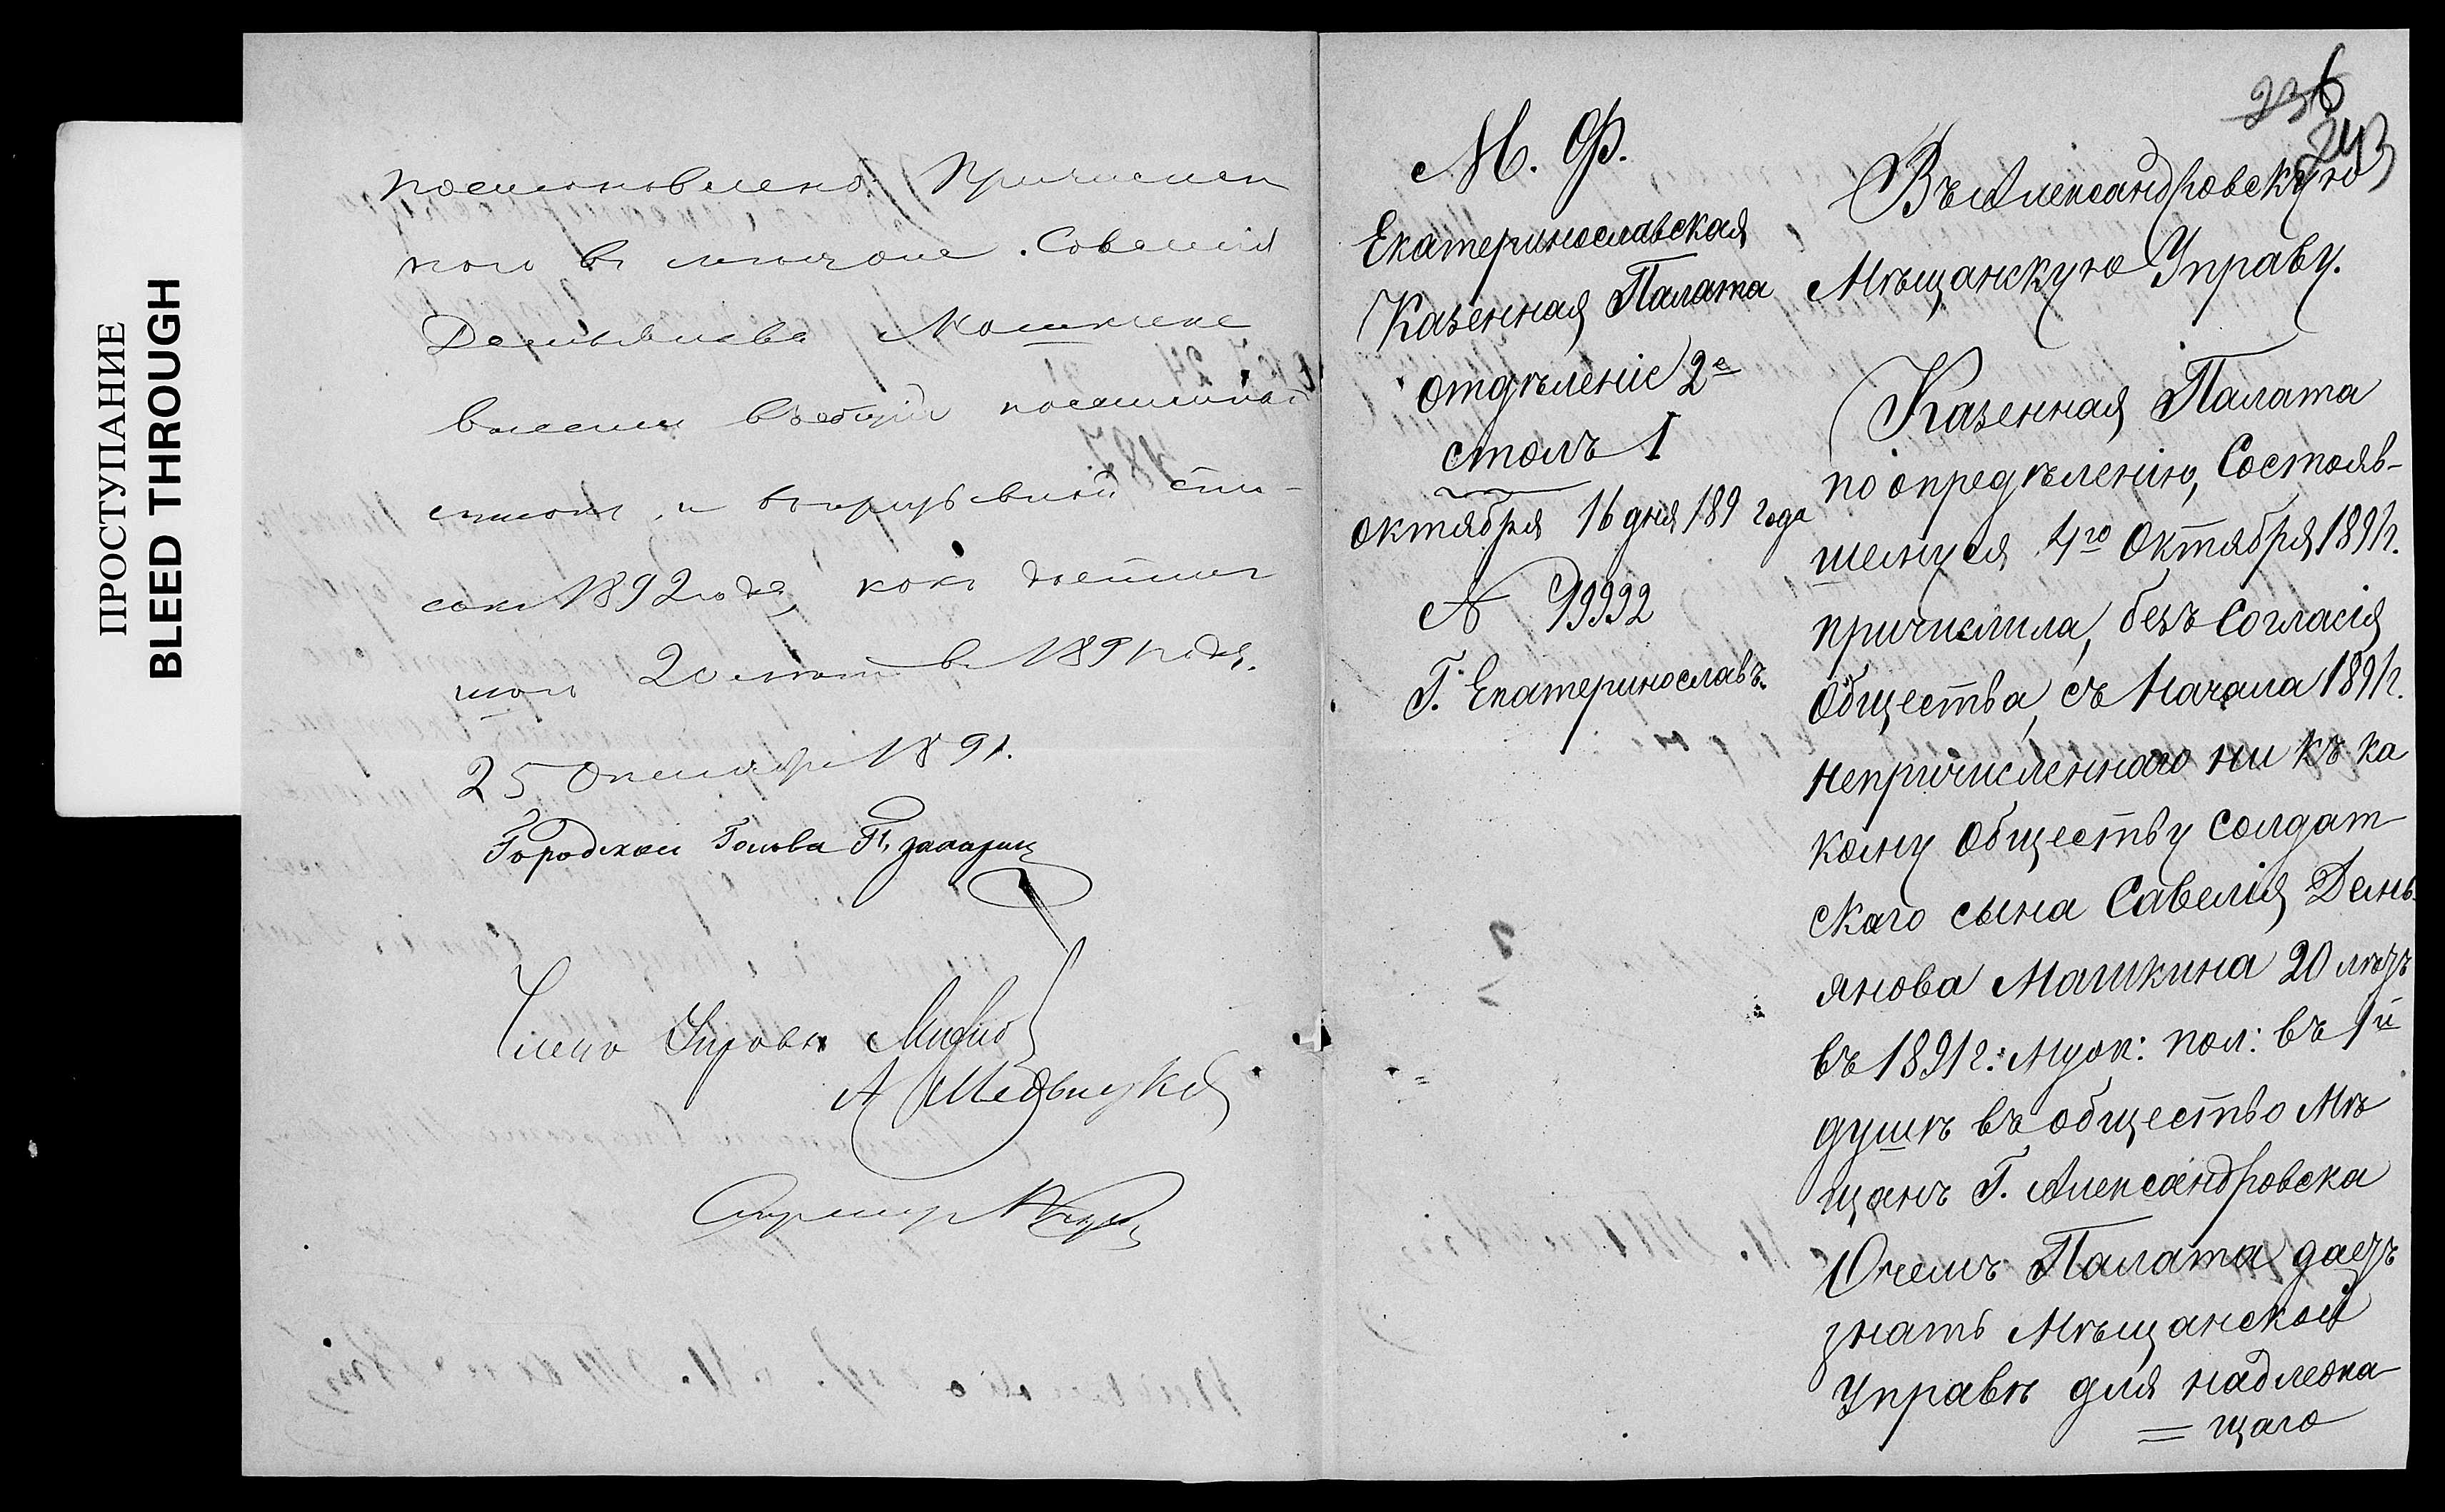 ПРОСТУПАНИЕ
BLEED THROUGH
постановлено: Причислен
наго въ мещане Савелія
Демьянова Машкина
внести въ общій посемейный
списокъ и въ призывной спи-
сокъ 1892 года, какъ
20 летъ въ 1891 году.
25 Октября 1891.
Городской Голова
Члены Управы
А Медв
236
243
М. Ф.
Екатеринославская
Казенная Палата
отдѣленіе 2е
столъ 1
октября 16 дня 189 года
№ 19992
Г. Екатеринославъ.
Въ Александровскую
Мѣщанскую Управу.
Казенная Палата
по опредѣленію, Состояв-
шемуся 4го Октября 1891г.
причислила, безъ Согласія
Общества, съ Начала 1891г.
непричисленнаго ни къ ка
кому Обществу солдат
скаго сына Савелія Демь-
янова Машкина 20 лѣтъ
въ 1891 г: муж: пол: въ 1й
душѣ въ общество Мѣ
щанъ Г. Александровска
О чемъ Палата даетъ
знать Мѣщанской
Управѣ для надлежа-
= щаго